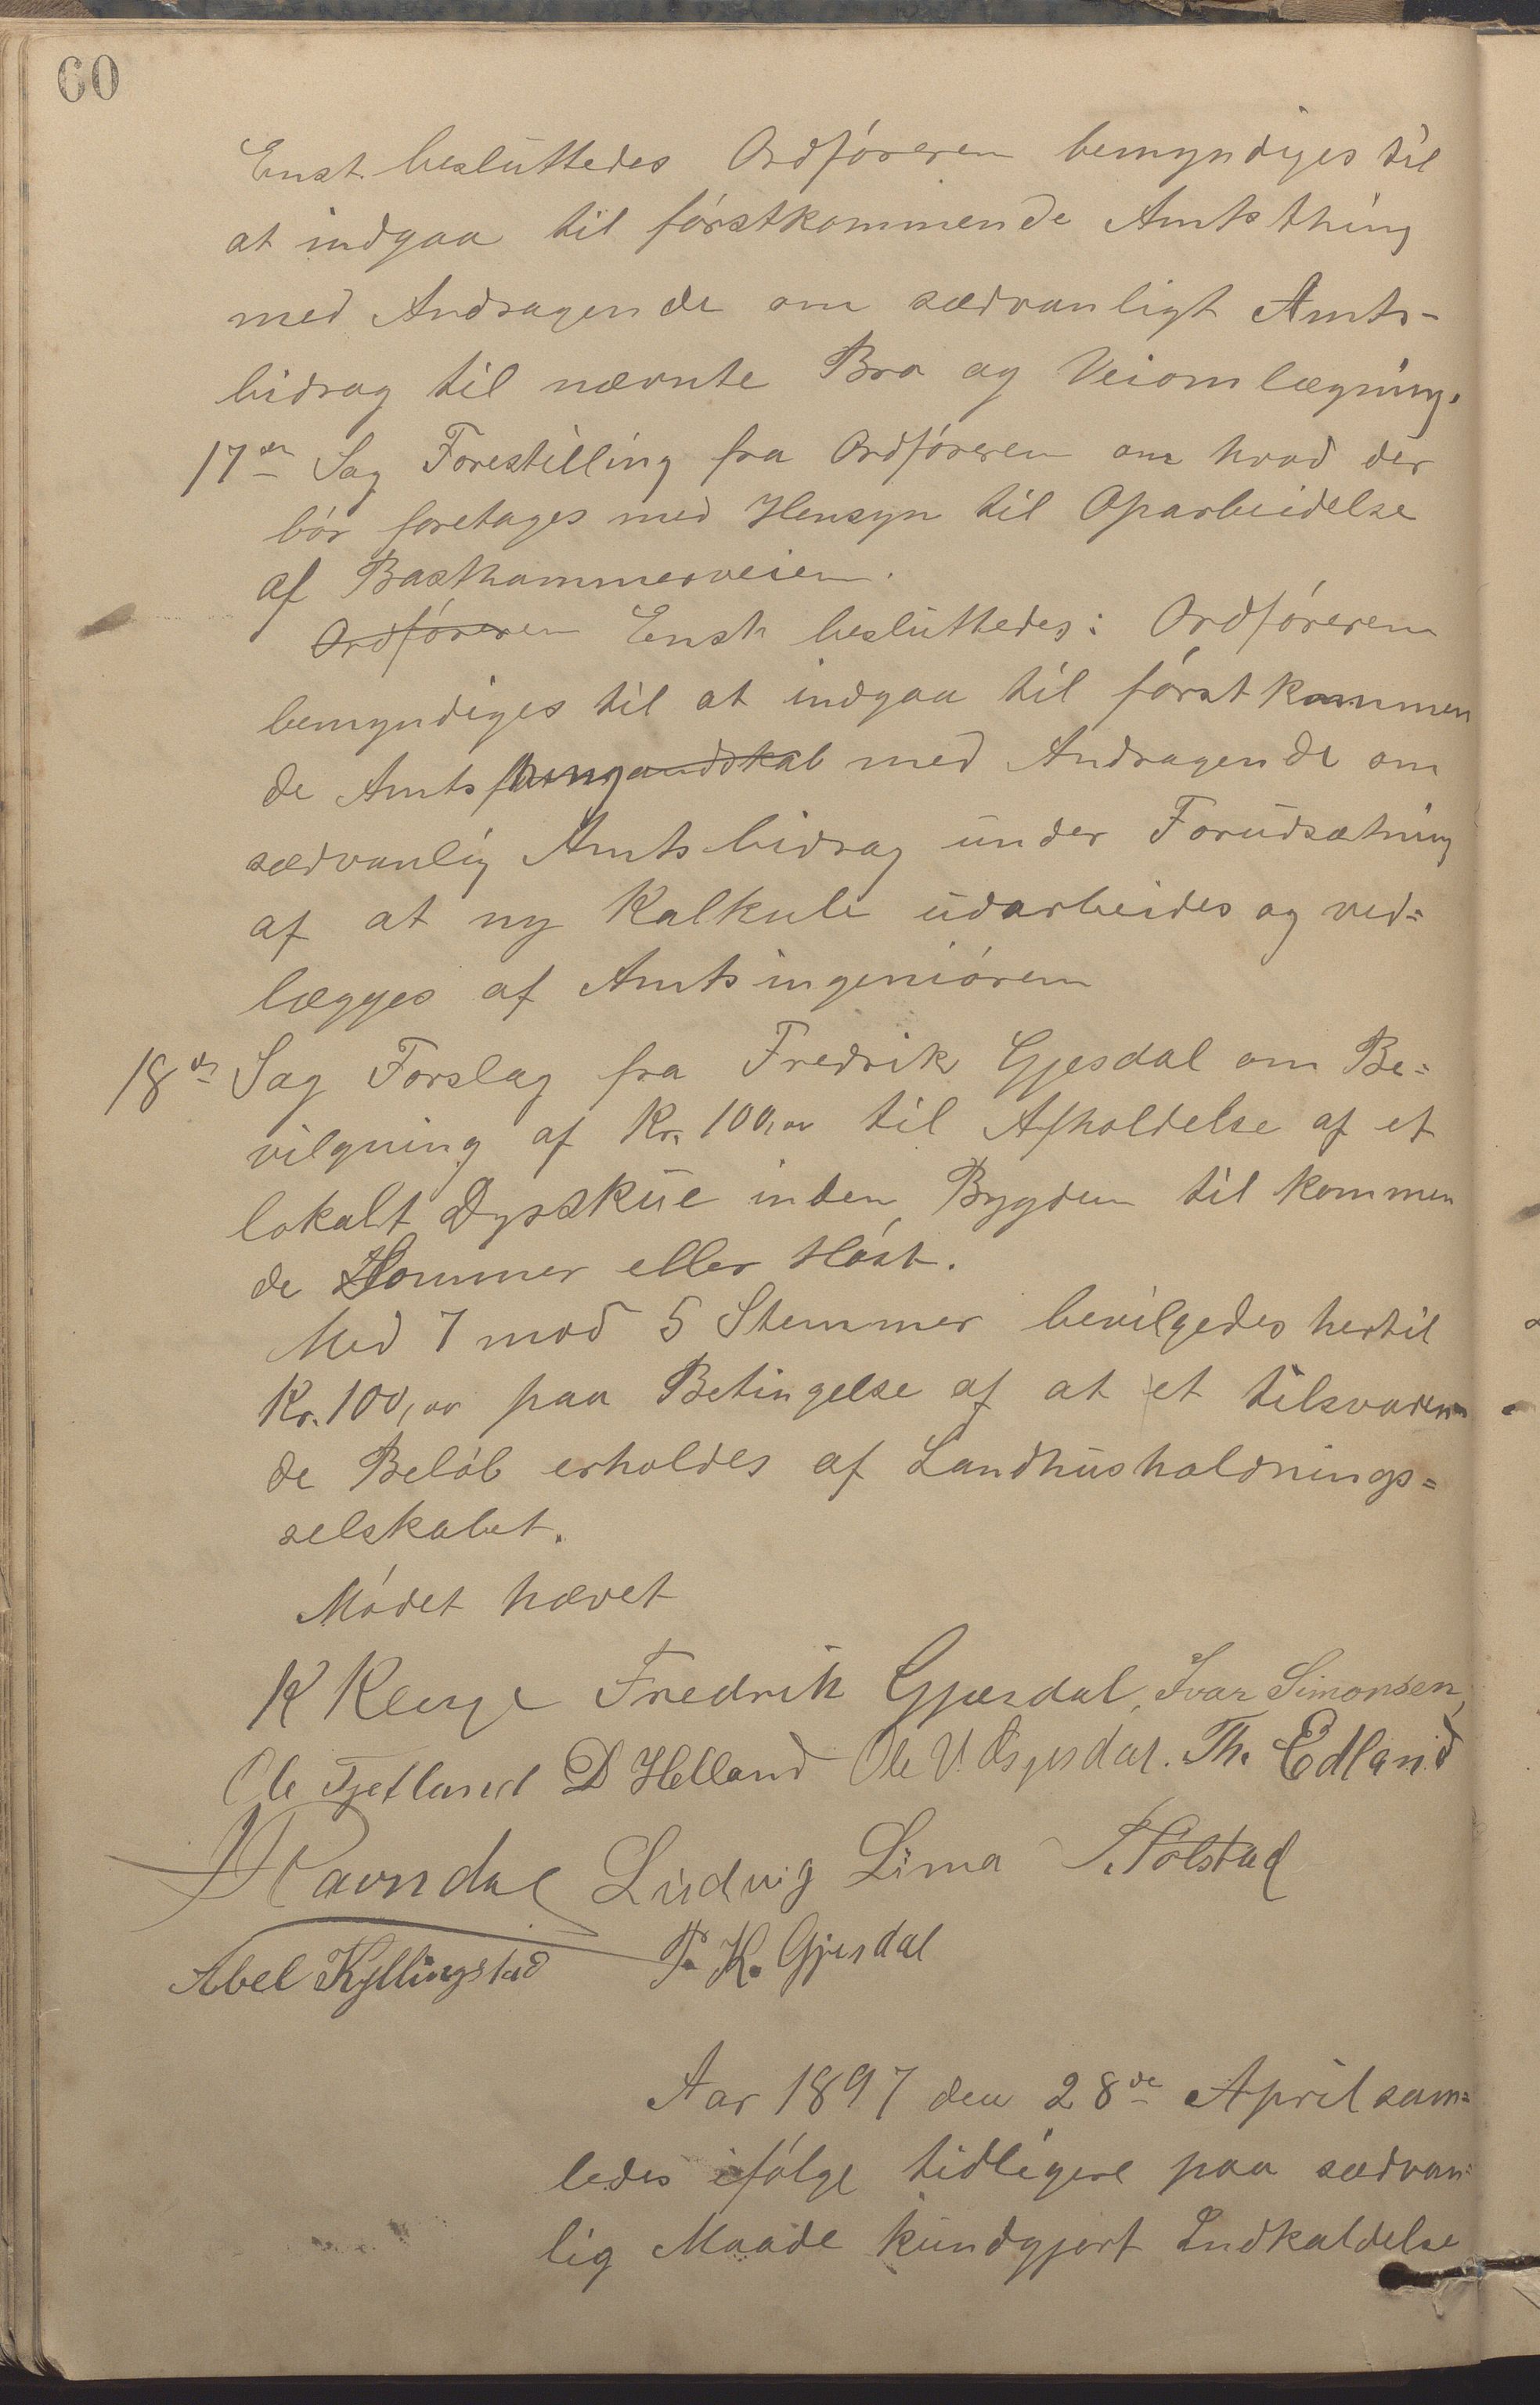 60
Enst. besluttedes Ordføreren bemyndiges til
at indgaa til førstkommende Amtsthing
med Andragende om sædvanligt Amts-
bidrag til nævnte Bro og Veiomlægning.
17de Sag Forestilling fra Ordføreren om hvad der
bør foretages med Hensyn til Oparbeidelse
af Basthammerveien.
Ordføreren Enst besluttedes: Ordføreren
bemyndiges til at indgaa til førstkommen
de Amts med Andragende om
sædvanlig Amtsbidrag under Forudsætning
af at ny Kalkule udarbeides og ved=
lægges af Amtsingeniøren
18de Sag Forslag fra Fredrik Gjesdal om Be=
vilgning af Kr. 100,00 til Afholdelse af et
lokalt Dyrskue inden Bygden til kommen
de Sommer eller Høst.
Med 7 mod 5 Stemmer bevilgedes hertil
Kr. 100,00 paa Betingelse af at et tilsvaren
de Beløb erholdes af Landhusholdnings=
selskabet.
Mødet hævet
K Kluge Fredrik Gjesdal, Ivar Simonsen,
Ole Fjetland D Helland Ole V. Gjesdal. Th. Edland
Ravndal Ludvig Lima T. Polstad
Abel Kyllingstad T. K. Gjesdal
Aar 1897 den 28de April sam=
ledes ifølge tidligere paa sædvan=
lig Maade kundgjort Indkaldelse